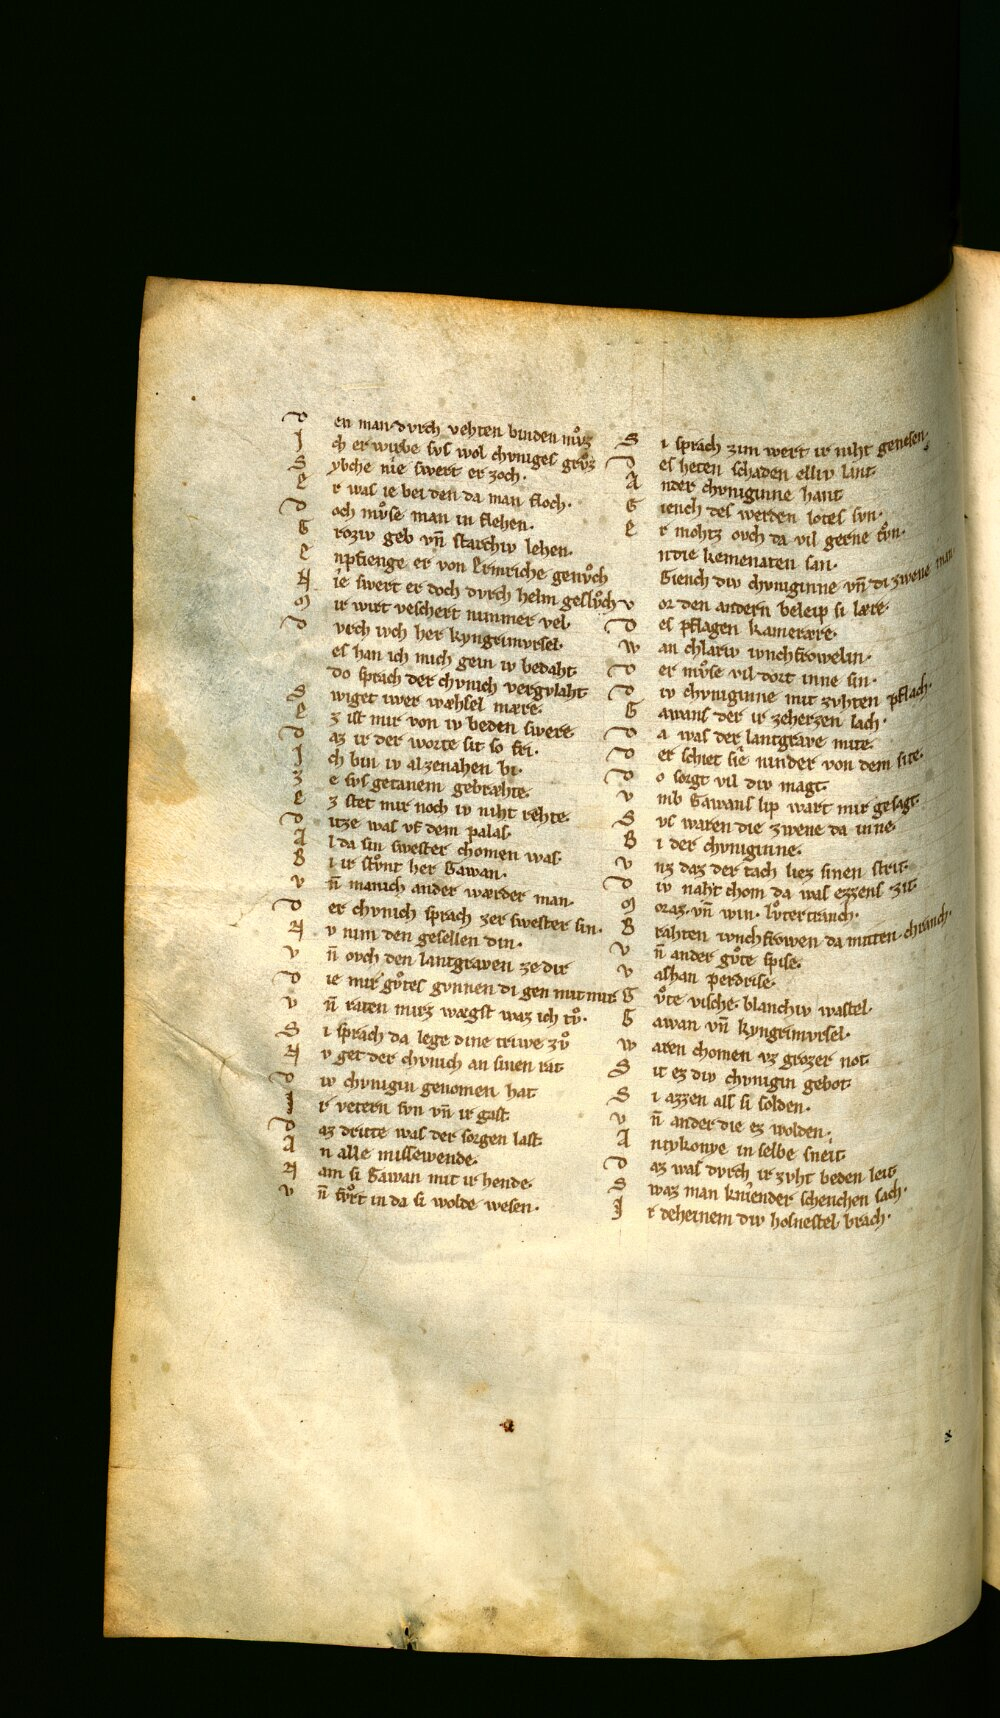 D en man dvrch vehten binden mvͦz
J ch er wirbe svs wol chvniges grvͦz
S ybche nie swert er zoch.
E r was ie bei den da man floch.
D och mvͦse man in flehen.
G roziv geb vn̄ starchiv lehen.
E npfienge er von Ermriche genvͦch
N ie swert er doch dvrch helm geslvͦch
M ir wirt veschert nimmer vel
D vrch ivch her kyngrimvrsel.
es han ich mich gein iv bedaht
do sprach der chvnich vergvlaht
S wiget iwer wæhsel mære.
E z ist mir von iv beden swere
D az ir der worte sit so fri.
J ch bin iv alzenahen bi.
Z e svs getanem gebræhte.
E z stet mir noch iv niht rehte.
D itze was vf dem palas.
A l da sin swester chomen was.
B i ir stvͦnt her Gawan.
V n̄ manich ander wærder man.
D er chvnich sprach zer swester sin.
N v nim den gesellen din.
V n̄ ovch den lantgraven ze dir
D ie mir gvͦtes gvnnen di gen mit mir
V n̄ raten mirz wægst waz ich tvͦ.
S i sprach da lege dine triwe zvͦ
N v get der chvnich an sinen rat
D iv chvnigin genomen hat
J r vetern svn vn̄ ir gast
D az dritte was der sorgen last.
A n alle missewende.
N am si Gawan mit ir hende.
V n̄ fvͦrt in da si wolde wesen.
S i sprach zim wert ir niht genesen.
D es heten schaden elliv lant
A n der chvniginne hant
G iench des werden lotes svn.
E r mohtz ovch da vil gerne tvͦn.
in die kemenaten san.
Giench div chvniginne vn̄ di zwene man.
V or den andern beleip si lære.
D es pflagen kameræere.
W an chlariv ivnchfrowelin.
D er mvͦse vil dort inne sin.
D iv chvniginne mit zvhten pflach.
G awans der ir zeherzen lach.
D a was der lantgrave mite.
D er schiet sie ninder von dem site.
D o sorgt vil div magt.
V mb Gawans lip wart mir gesagt.
S vs waren die zwene da inne.
B i der chvniginne.
V nz daz der tach liez sinen strit.
D iv naht chom da was ezzens zit.
M oraz. vn̄ win. lvͦtertranch.
B rahten ivnchfrowen da mitten chranch.
V n̄ ander gvͦte spise.
V ashan perdrise.
G vͦte vische. blanchiv wastel.
G awan vn̄ kyngrimvrsel.
W aren chomen vz grozer not
S it ez div chvnigin gebot
S i azzen als si solden.
V n̄ ander die ez wolden.
A ntykonye in selbe sneit
D az was dvrch ir zvht beden leit
S waz man kniender schenchen sach.
J r deheinem div hosnestel brach.